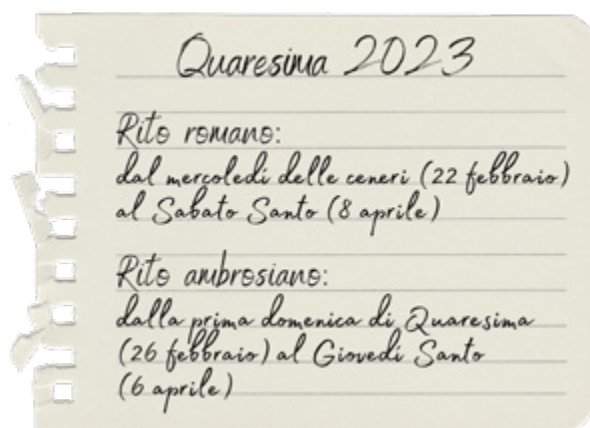 Quaresima 2023
Rito romano:
dal mercoledì delle ceneri (22 febbraio)
al Sabato Santo (8 aprile)
Rito ambrosiano:
dalla prima domenica di Quaresima
(26 febbraio) al Giovedì Santo
(6 aprile)